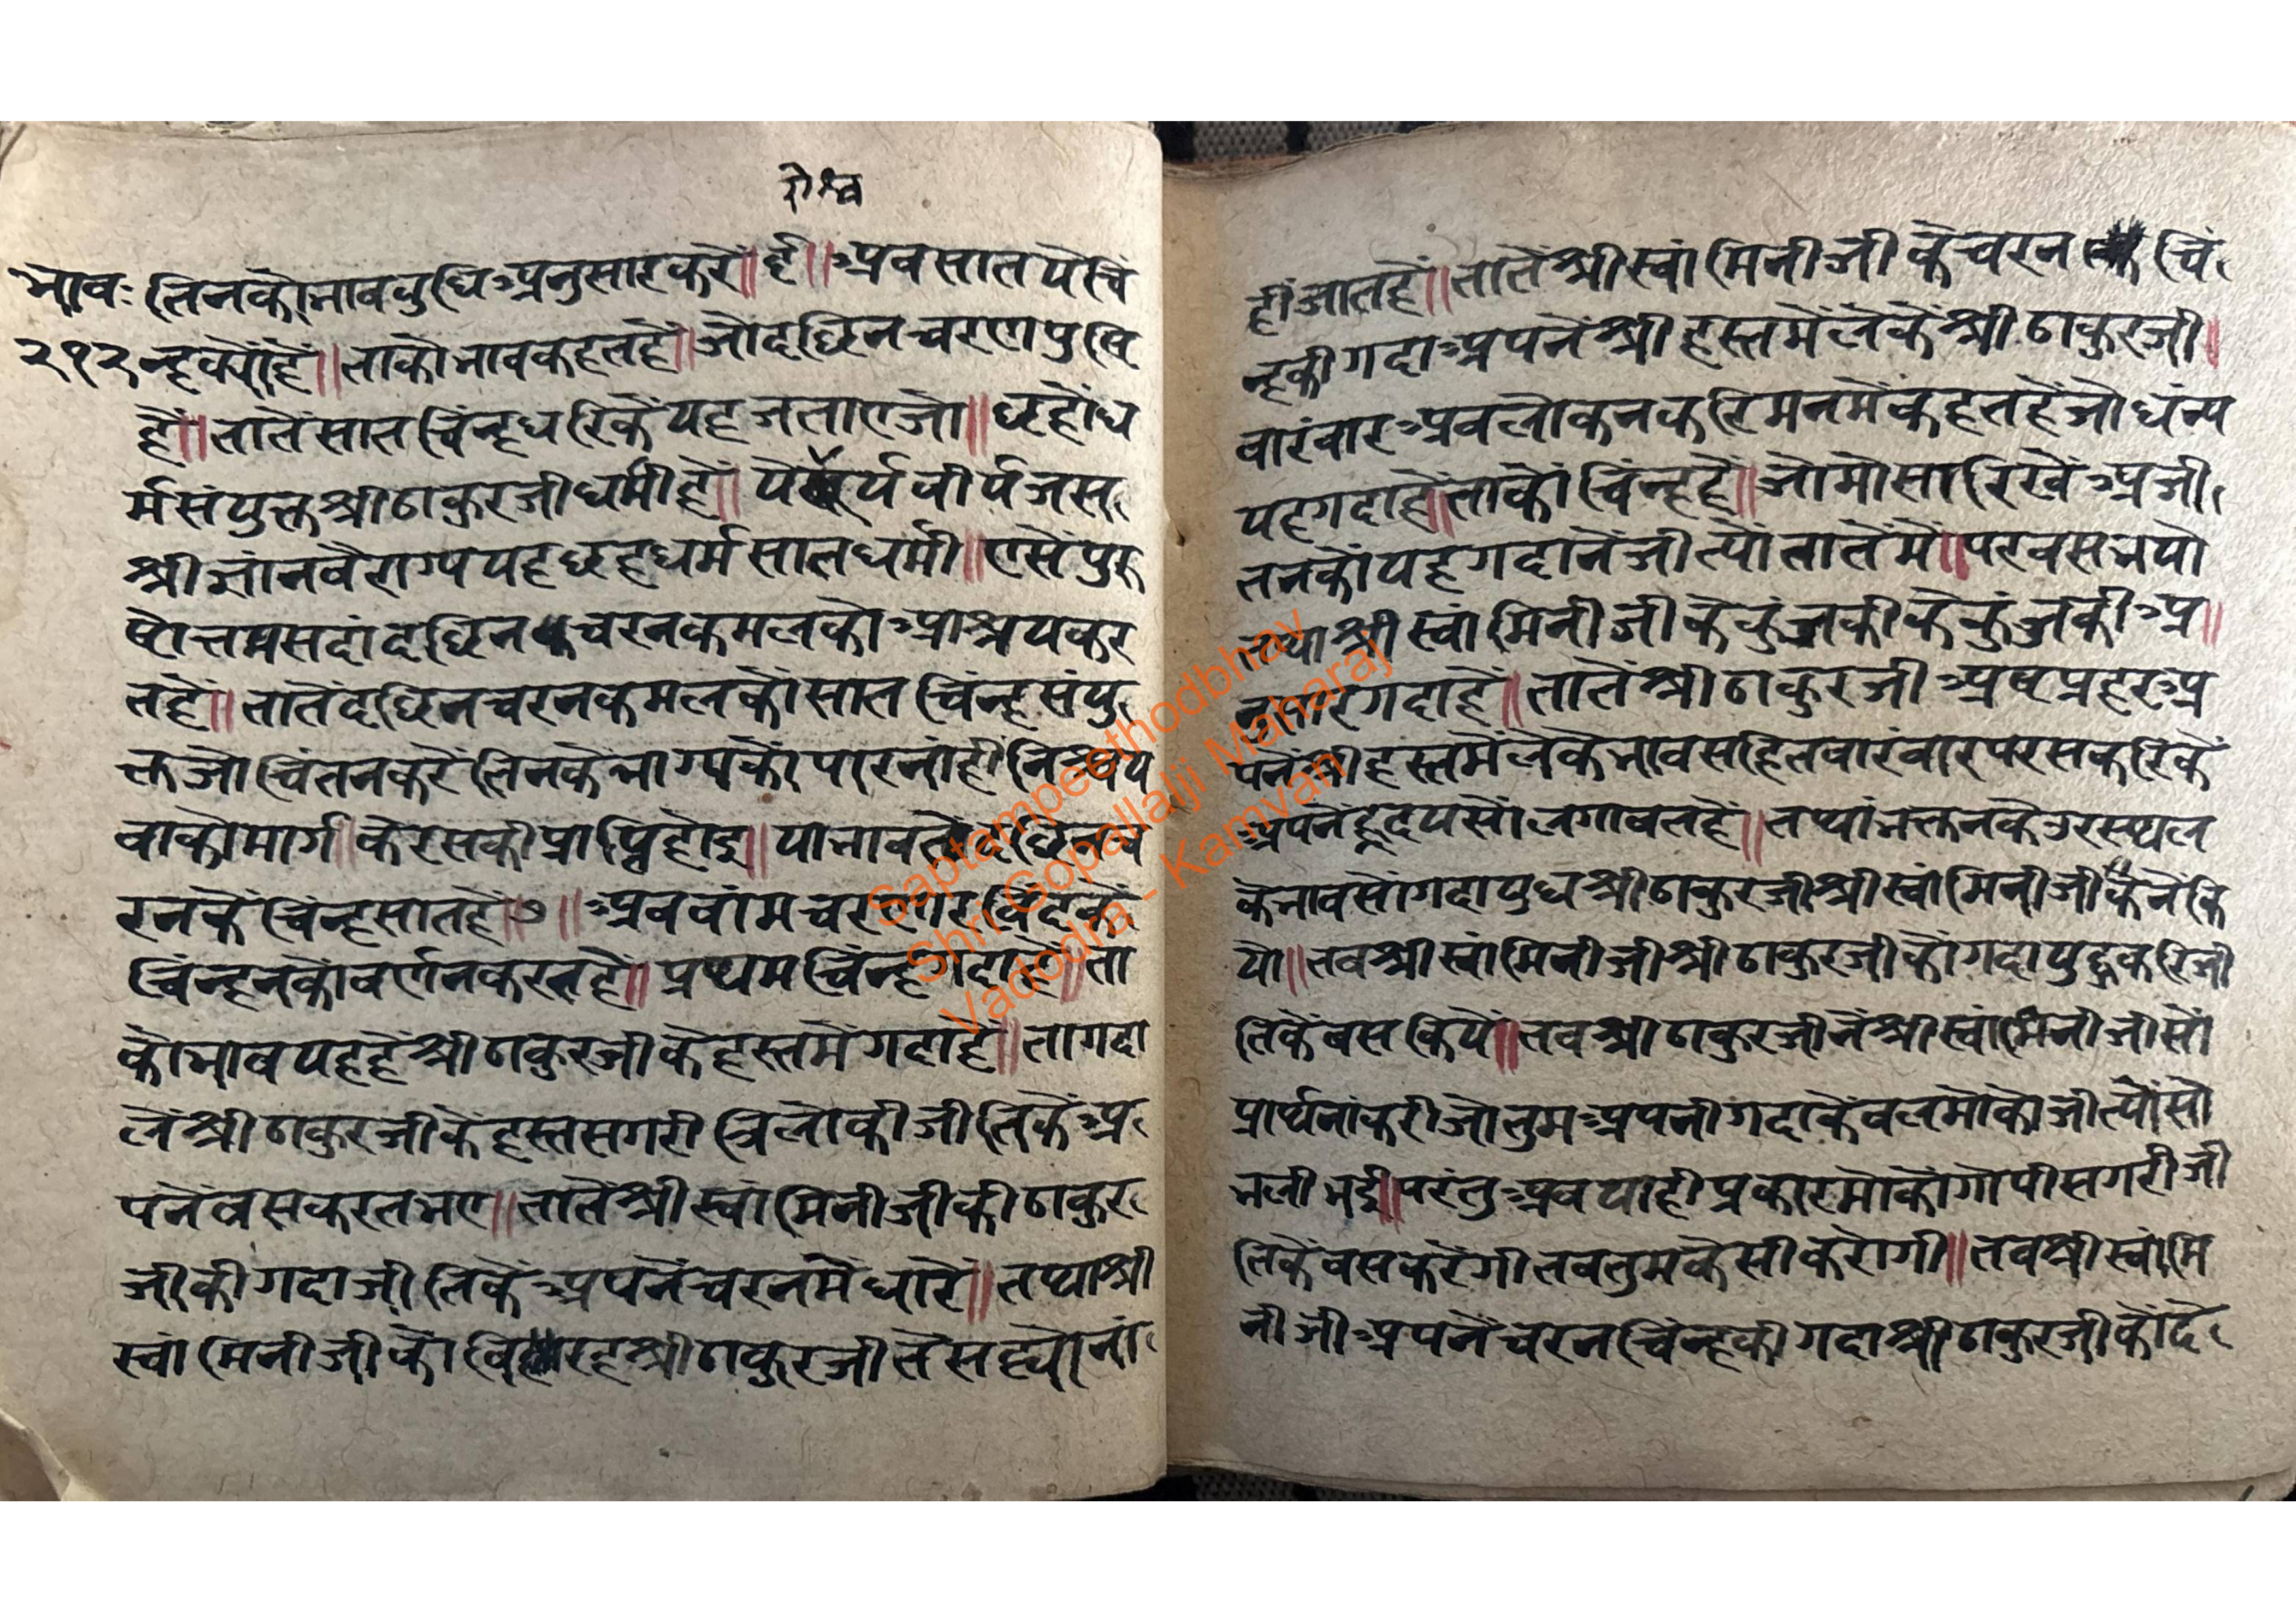 भावः
२१२
तिनकोभावबुधिअनुसारकरें॥है॥अवसातयेचिं
न्हक्योंहैं॥ताकोभावकहतहैं॥जोदछिनचरणपुष्टि
हैं॥तातेंसातचिंन्हधरिकेंयहजताएजो॥छहोध
र्मसंयुक्तश्रीठाकुरजीधर्मीहैं॥ऐश्वर्यवीर्यजस
श्रीज्ञांनवैराग्ययहछहधर्मसातधर्मी॥एसेंपुरु
षोत्तमसदांदछिनचरनकमलकोआश्रयकर
तहैं॥तातेंदछिनचरनकमलकोंसातचिंन्हसंयु
क्तजोचिंतनकरेंतिनकेंभाग्यकोंपारनांहींनिश्चय
वाकोमार्ग॥केरसकीप्राप्तिहोइ॥याभावतेंदछिनच
रनकेंचिंन्हसातहैं॥७॥अववांमचरणारविंदकें
चिंन्हनकोंवर्णनकरतहैं॥प्रथमचिंन्हगदाहै॥ता
कोभावयहहैंश्रीठाकुरजीकेहस्तमेंगदाहैं॥तागदा
लेंश्रीठाकुरजीकेंहस्तसगरीत्रिलोकीजीतिकेंअ
पनेंवसकरतभए॥तातेंश्रीस्वांमिनीजीकीठाकुर
जीकीगदाजीतिकेंअपनेंचरनमेंधारे॥तथाश्री
स्वांमिनीजीकोविरहश्रीठाकुरजीतेंसह्योनां
हींजातहैं॥तातेंश्रीस्वांमिनीजीकेंचरनचिं
न्हकीगदाअपनेंश्रीहस्तमेंलेकेंश्रीठाकुरजी॥
वारंवारअवलोकनकरिमनमेंकहतहेंजोधंन्य
यहगदाहैं॥ताकोंचिंन्हहैं॥जोमोसारिखेंअजी
तनकोंयहगदानेंजीत्योंतातेंमें॥परवसभयो
तथाश्रीस्वांमिनीजीकेकुंजकीकेकुंजकीअ॥
नुसारगदाहैं॥तातेंश्रीठाकुरजीअष्टप्रहरअ
पनेंश्रीहस्तमेंलेकेंभावसहितवारंवारपरसकरिकें
अपनेंह्रदयसोंलगावतहैं॥तथांभक्तनकेउरस्थल
केभावसोंगदायुधश्रीठाकुरजीश्रीस्वांमिनीजीकेनेंकि
यो॥तवश्रीस्वांमिनीजीश्रीठाकुरजीकोंगदायुद्धकरिजी
तिकेंवसकियें॥तवश्रीठाकुरजीनेंश्रीस्वांमिनीजीसों
प्रार्थनांकरीजोतुमअपनीगदाकेंवलमोंकोजीत्योंसो
भलीभई॥परंतुअवयाहीप्रकारमोकोंगोपीसगरीजी
तिकेंवसकरेंगीतवतुमकेसीकरोगी॥तवश्रीस्वांमि
नीजीअपनेंचरनचिंन्हकीगदाश्रीठाकुरजीकोंदे
Saptampeethodbhav
Shri Gopallalji Maharaj
Vadodra - Kamvan